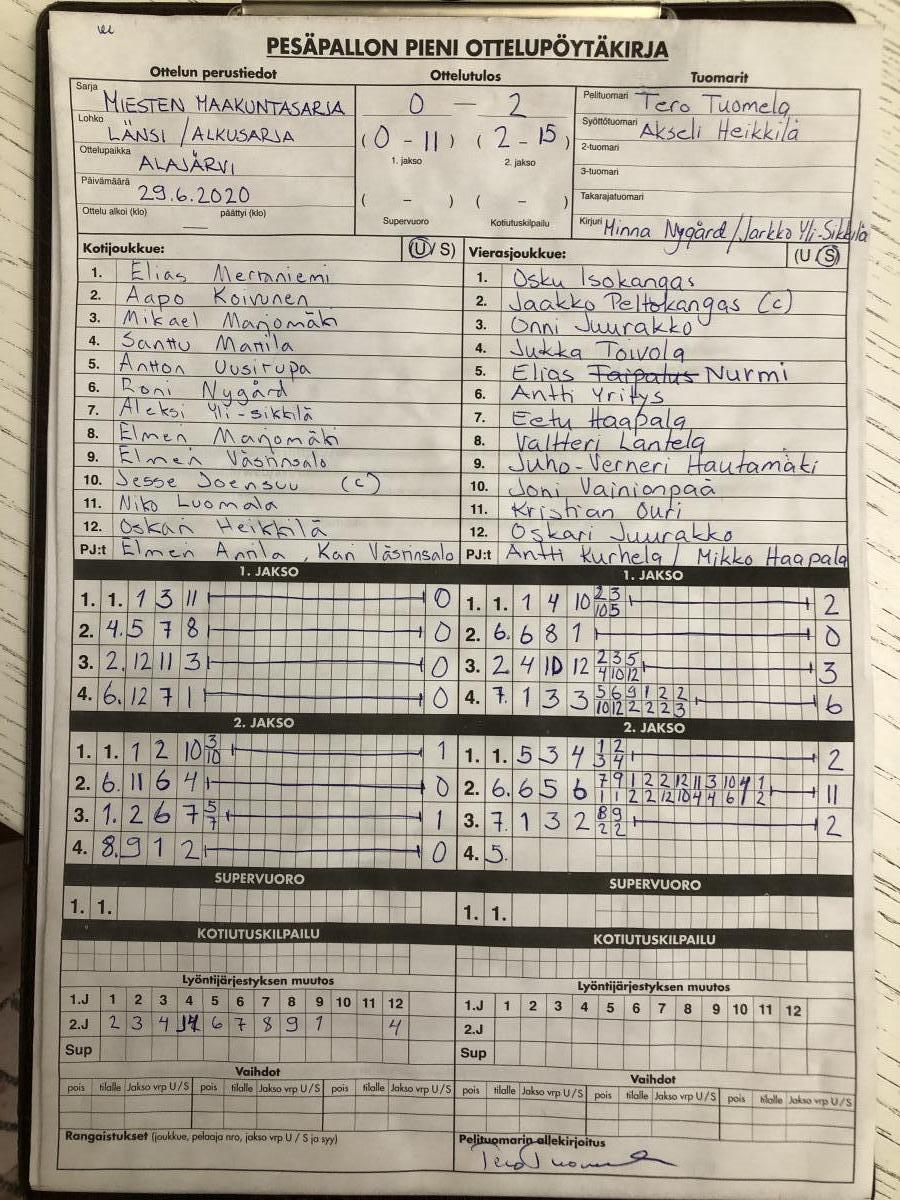 PESÄPALLON PIENI OTTELUPÖYTÄKIRJA
Ottelun perustiedot
Sarja MIESTEN MAAKUNTASARJA
Lohko LÄNSI /ALKUSARJA
Ottelupaikka ALAJÄRVI
Päivämäärä 29.6.2020
Ottelu alkoi (klo) — päättyi (klo)
Ottelutulos
0 — 2
(0 - 11) (2 - 15)
1. jakso 2. jakso
( - ) ( - )
Supervuoro Kotiutuskilpailu
Tuomarit
Pelituomari Tero Tuomela
Syöttötuomari Akseli Heikkilä
2-tuomari
3-tuomari
Takarajatuomari
Kirjuri Minna Nygård / Jarkko Yli-Sikkilä
Kotijoukkue: (U/S)
1. Elias Merraniemi
2. Aapo Koivunen
3. Mikael Marjomäki
4. Santtu Mattila
5. Antton Uusitupa
6. Roni Nygård
7. Aleksi Yli-sikkilä
8. Elmeri Marjomäki
9. Elmeri Västinsalo
10. Jesse Joensuu (c)
11. Niko Luomala
12. Oskari Heikkilä
PJ:t Elmeri Anila, Kari Västinsalo
Vierasjoukkue: (U/S)
1. Osku Isokangas
2. Jaakko Peltokangas (c)
3. Onni Juurakko
4. Jukka Toivola
5. Elias Taipalus Nurmi
6. Antti Yritys
7. Eetu Haapala
8. Valtteri Lantela
9. Juho-Verneri Hautamäki
10. Joni Vainionpää
11. Kristian Ouri
12. Oskari Juurakko
PJ:t Antti Kurhela / Mikko Haapala
1. JAKSO
1. 1. 1 3 11 0
2. 4. 5 7 8 0
3. 2. 12 11 3 0
4. 6. 12 7 1 0
2. JAKSO
1. 1. 1 2 10 3 1
10
2. 6. 11 6 4 0
3. 1. 2 6 7 5 1
7
4. 8. 9 1 2 0
SUPERVUORO
1. 1.
KOTIUTUSKILPAILU
Lyöntijärjestyksen muutos
1.J 1 2 3 4 5 6 7 8 9 10 11 12
2.J 2 3 4 6 7 8 9 1 4
Sup
Vaihdot
pois tilalle Jakso vrp U/S pois tilalle Jakso vrp U/S pois tilalle Jakso vrp U/S
Rangaistukset (joukkue, pelaaja nro, jakso vrp U / S ja syy)
1. JAKSO
1. 1. 1 4 10 2 3 2
10 5
2. 6. 6 8 1 0
3. 2 4 10 12 2 3 5 3
4 10 12
4. 7. 1 3 3 5 6 9 1 2 2 6
10 12 2 2 2 3
2. JAKSO
1. 1. 5 3 4 1 2 2
3 4
2. 6. 6 5 6 7 9 1 2 2 12 11 3 10 4 1 11
1 1 2 2 12 10 4 4 6 7 2
3. 7. 1 3 2 8 9 2
2 2
4. 5.
SUPERVUORO
1. 1.
KOTIUTUSKILPAILU
Lyöntijärjestyksen muutos
1.J 1 2 3 4 5 6 7 8 9 10 11 12
2.J
Sup
Vaihdot
pois tilalle Jakso vrp U/S pois tilalle Jakso vrp U/S pois tilalle Jakso vrp U/S
Pelituomarin allekirjoitus